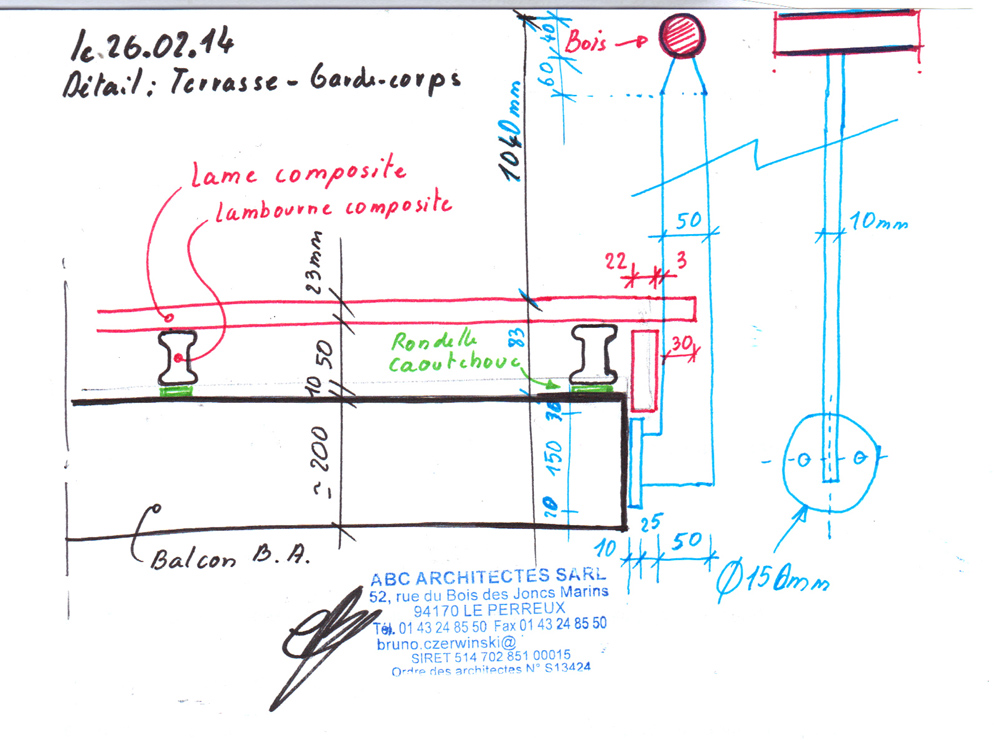 le 26.02.14
Détail : Terrasse - Garde-corps
Lame composite
Lambourne composite
Bois
40
60
1040mm
50
10mm
22
3
30
23mm
50
10
≃200
83
Rondelle
caoutchouc
30
150
20
10
25
50
Ø150mm
Balcon B.A.
ABC ARCHITECTES SARL
52, rue du Bois des Joncs Marins
94170 LE PERREUX
Tél. 01 43 24 85 50 Fax 01 43 24 85 50
bruno.czerwinski@
SIRET 514 702 851 00015
Ordre des architectes N° S13424